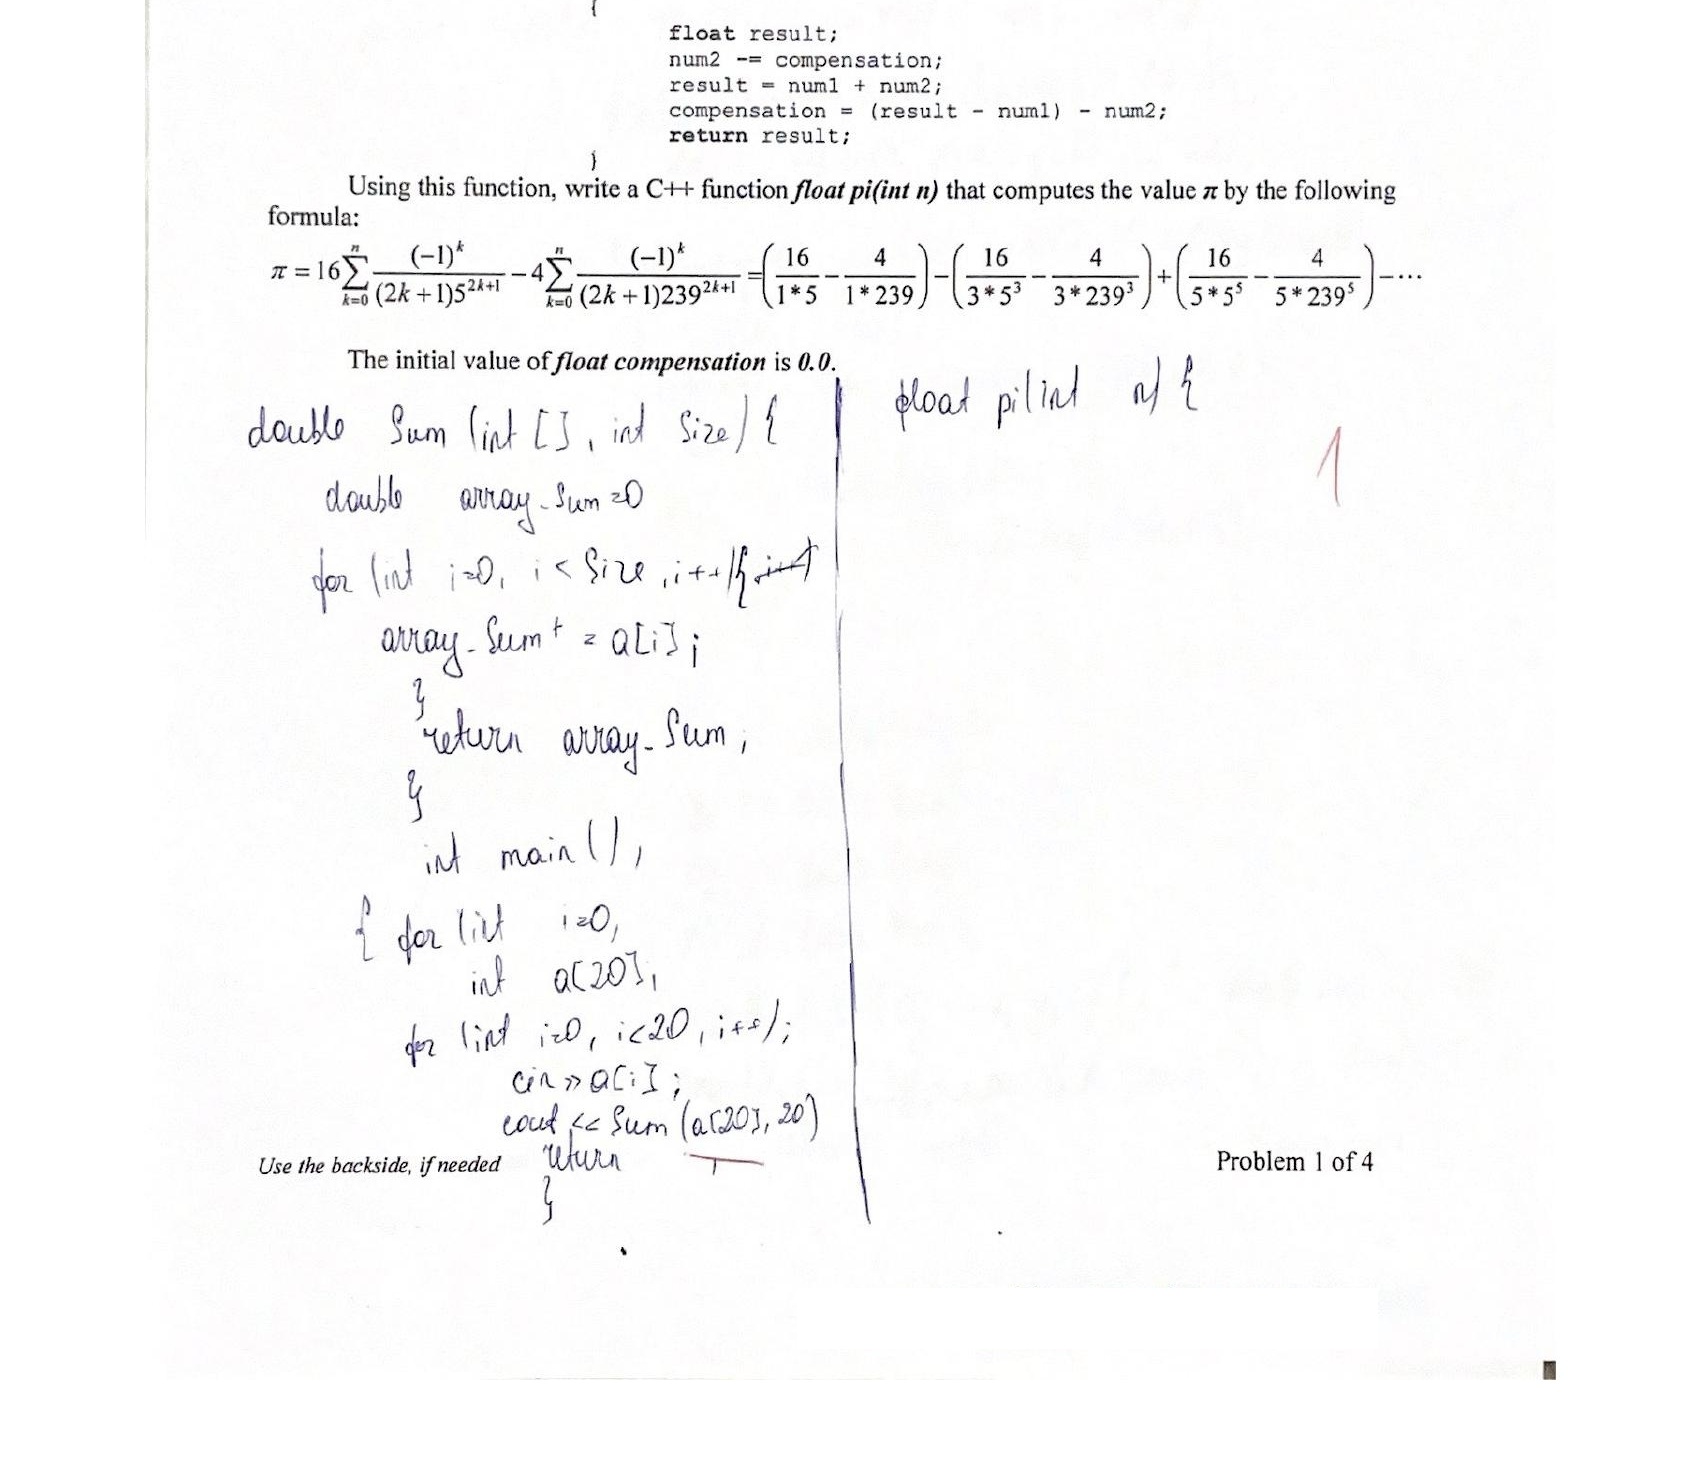 {
float result;
num2 -= compensation;
result = num1 + num2;
compensation = (result - num1) - num2;
return result;
}
Using this function, write a C++ function float pi(int n) that computes the value π by the following
formula:
π = 16 ∑_{k=0}^{n} (-1)^k / ((2k+1)5^{2k+1}) - 4 ∑_{k=0}^{n} (-1)^k / ((2k+1)239^{2k+1}) = (16/(1*5) - 4/(1*239)) - (16/(3*5^3) - 4/(3*239^3)) + (16/(5*5^5) - 4/(5*239^5)) - ⋯
The initial value of float compensation is 0.0.
double Sum (int [], int Size) {
double array_Sum = 0
for (int i=0, i < Size, i++) {
array_Sum + = a[i];
}
return array_Sum;
}
int main(),
{ for (int i=0,
int a[20],
for (int i=0, i<20, i++);
cin >> a[i];
cout << Sum (a[20], 20)
return
}
float pi(int n) {
1
Use the backside, if needed
Problem 1 of 4